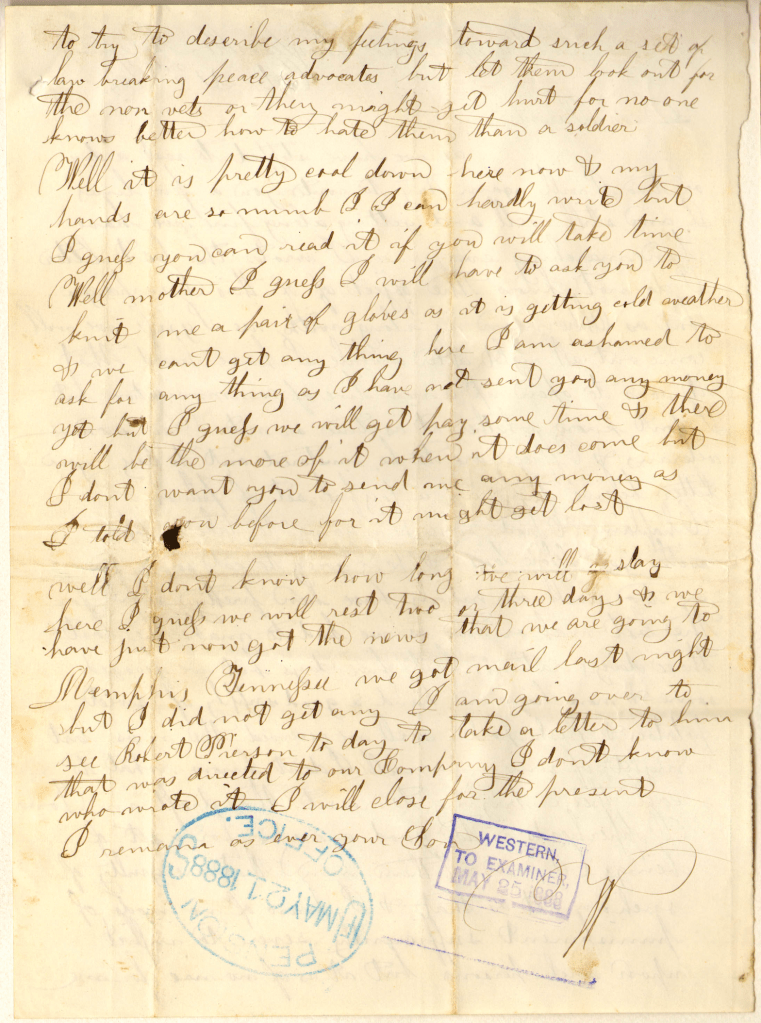 to try to describe my feelings toward such a set of
law breaking peace advocates but let them look out for
the non vets or they might get hurt for no one
knows better how to hate them than a soldier
Well it is pretty cool down here now & my
hands are so numb I I can hardly write but
I guess you can read it if you will take time
Well mother I guess I will have to ask you to
knit me a pair of gloves as it is getting cold weather
& we cant get any thing here I am ashamed to
ask for any thing as I have not sent you any money
yet but I guess we will get pay some time & there
will be the more of it when it does come but
I dont want you to send me any money as
I told you before for it might get lost
well I dont know how long we will stay
here I guess we will rest two or three days & we
have just now got the news that we are going to
Memphis Tennessee we got mail last night
but I did not get any I am going over to
see Robert Pierson to day to take a letter to him
that was directed to our Company I dont know
who wrote it I will close for the present
I remain as ever your Son
WESTERN,
TO EXAMINER,
MAY 25 1888
PENSION
MAY 21 1888
OFFICE.